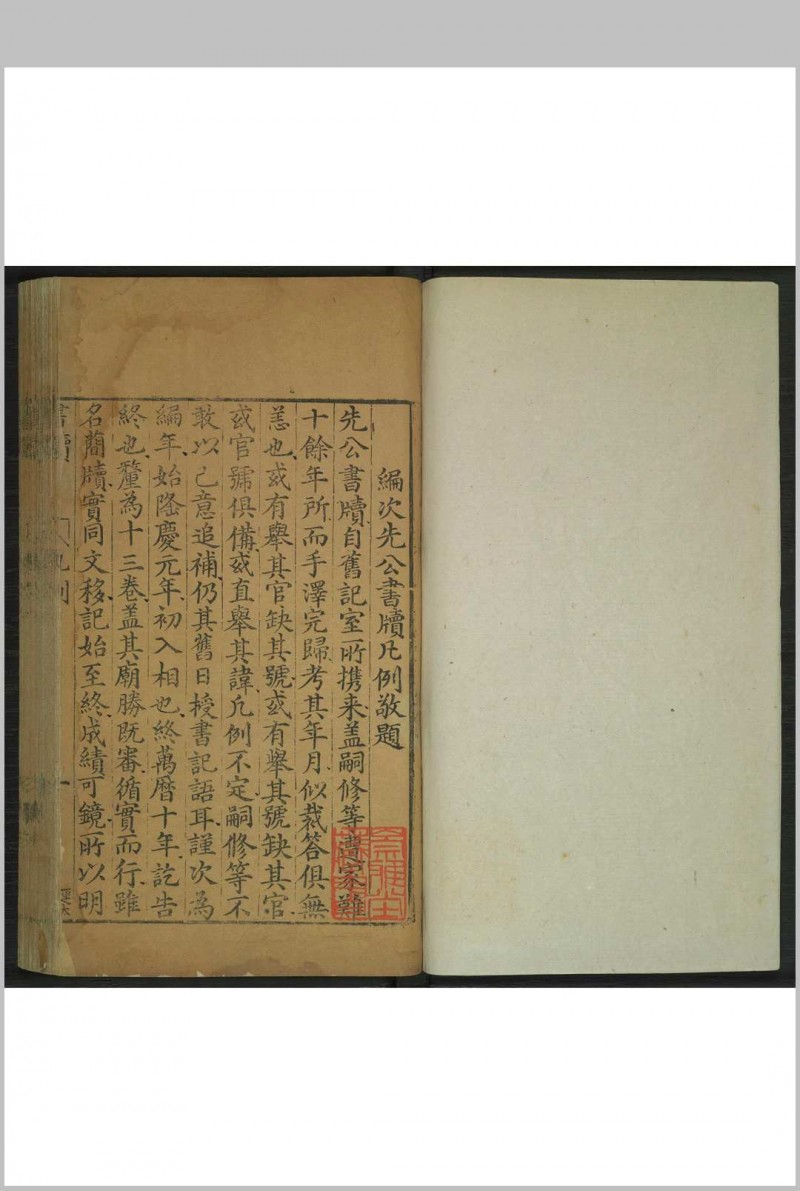 編次先公書牘凡例敬題
先公書牘自舊記室所携来盖嗣修等遭家難
十餘年所而手澤完歸考其年月似裁答俱無
恙也或有舉其官缺其號或有舉其號缺其官
或官號俱備或直舉其諱凡例不定嗣修等不
敢以己意追補仍其舊日授書記語耳謹次為
編年始隆慶元年初入相也終萬曆十年訖告
終也釐為十三卷盖其廟勝既審循實而行雖
名蕳牘實同文移記始至終成績可鏡所以明
書牘 凡例 一